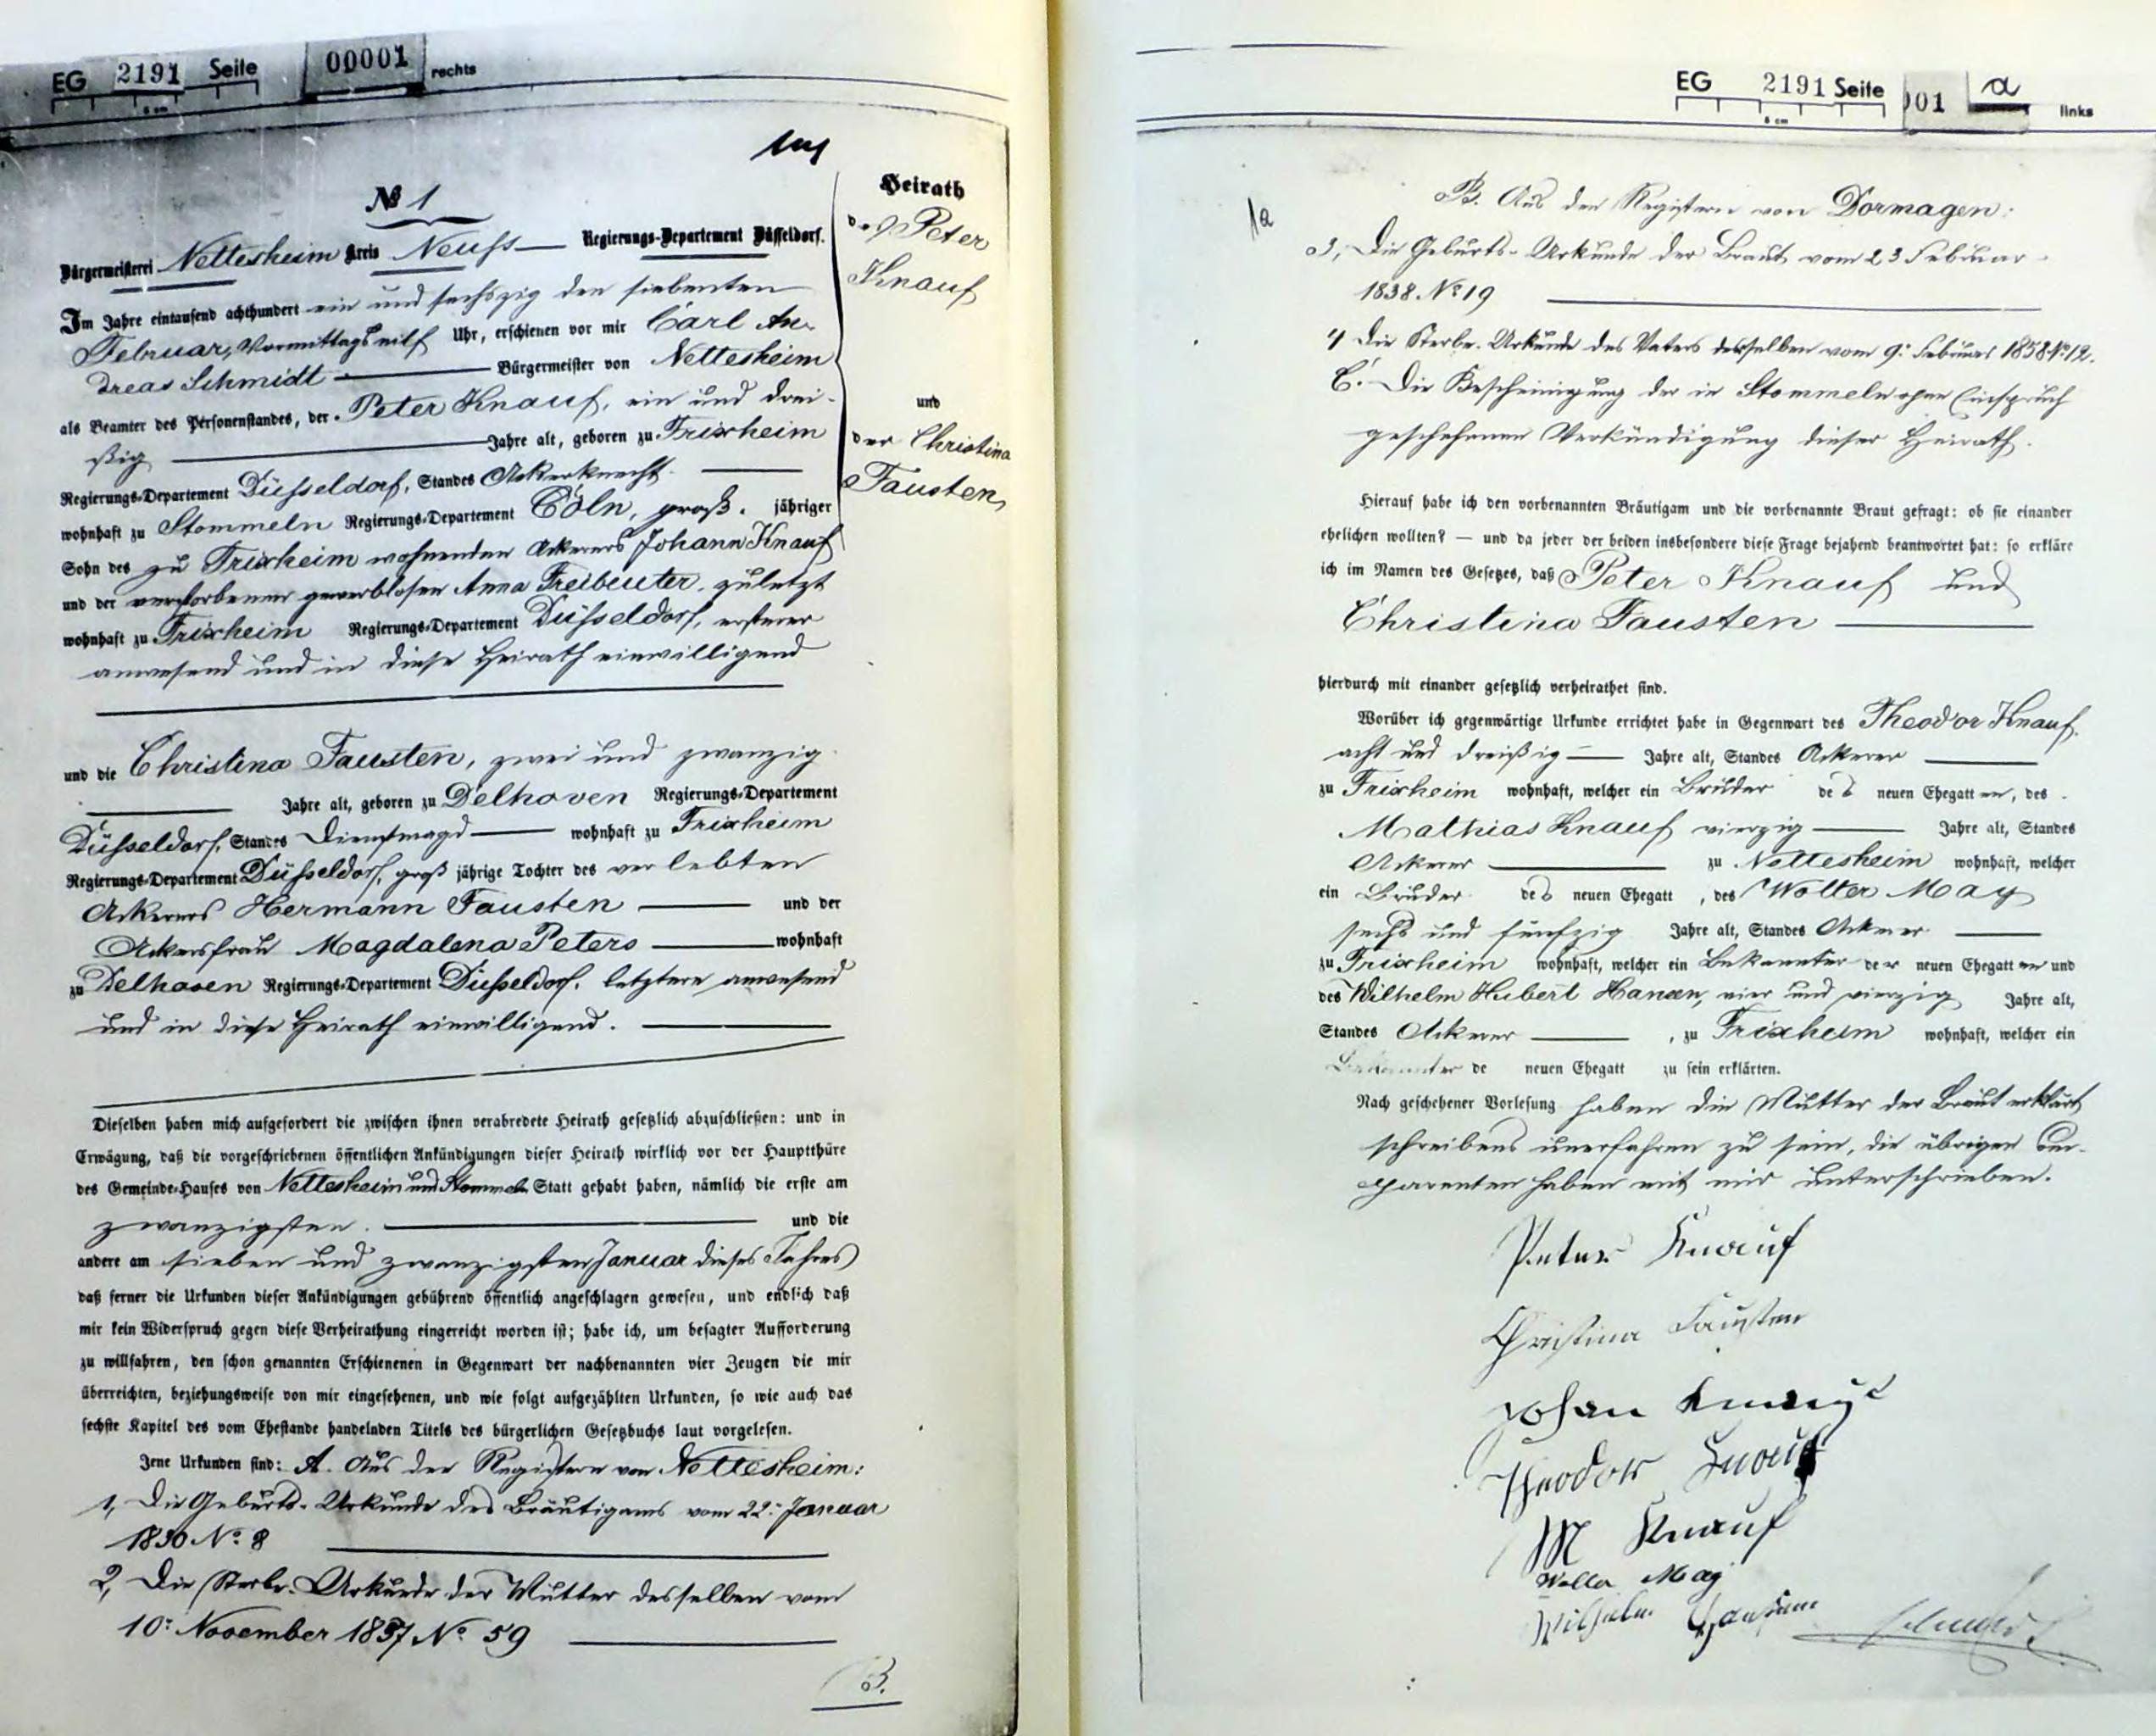 EG 2191 Seite 00001 rechts
6 cm
№ 1
Bürgermeisterei Nettesheim Kreis Neuss Regierungs-Departement Düsseldorf.
Im Jahre eintausend achthundert ein und sechszig den siebenten
Februar, Vormittags eilf Uhr, erschienen vor mir Carl An-
dreas Schmidt Bürgermeister von Nettesheim
als Beamter des Personenstandes, der Peter Knauf, ein und drei-
ßig Jahre alt, geboren zu Frixheim
Regierungs-Departement Düsseldorf, Standes Ackerknecht.
wohnhaft zu Stommeln Regierungs-Departement Cöln, groß. jähriger
Sohn des zu Frixheim wohnenden Ackerers Johann Knauf
und der verstorbenen gewerblosen Anna Freibeuter, zuletzt
wohnhaft zu Frixheim Regierungs-Departement Düsseldorf, ersterer
anwesend und in diese Heirath einwilligend
Heirath
des Peter
Knauf
und
der Christina
Fausten,
und die Christina Fausten, zwei und zwanzig
Jahre alt, geboren zu Delhoven Regierungs-Departement
Düsseldorf, Standes Dienstmagd wohnhaft zu Frixheim
Regierungs-Departement Düsseldorf, groß jährige Tochter des verlebten
Ackerers Hermann Fausten und der
Ackersfrau Magdalena Peters wohnhaft
zu Delhoven Regierungs-Departement Düsseldorf, letztere anwesend
und in diese Heirath einwilligend.
Dieselben haben mich aufgefordert die zwischen ihnen verabredete Heirath gesetzlich abzuschließen: und in
Erwägung, daß die vorgeschriebenen öffentlichen Ankündigungen dieser Heirath wirklich vor der Hauptthüre
des Gemeinde-Hauses von Nettesheim und Stommeln Statt gehabt haben, nämlich die erste am
zwanzigsten. und die
andere am sieben und zwanzigsten Januar dieses Jahres
daß ferner die Urkunden dieser Ankündigungen gebührend öffentlich angeschlagen gewesen, und endlich daß
mir kein Widerspruch gegen diese Verheirathung eingereicht worden ist; habe ich, um besagter Aufforderung
zu willfahren, den schon genannten Erschienenen in Gegenwart der nachbenannten vier Zeugen die mir
überreichten, beziehungsweise von mir eingesehenen, und wie folgt aufgezählten Urkunden, so wie auch das
sechste Kapitel des vom Ehestande handelnden Titels des bürgerlichen Gesetzbuchs laut vorgelesen.
Jene Urkunden sind: A. Aus den Registern von Nettesheim:
1, Die Geburts-Urkunde des Bräutigams vom 22: Januar
1830 No. 8
2, Die Sterbe-Urkunde der Mutter desselben vom
10: November 1857 No. 59
B.
EG 2191 Seite 001 a links
6 cm
1a
B. Aus den Registern von Dormagen:
3, Die Geburts-Urkunde der Braut vom 23 Februar
1838. No 19
4 Die Sterbe-Urkunde des Vaters derselben vom 9: Februar 1858 No 12.
C. Die Bescheinigung der in Stommeln ohne Einspruch
geschehenen Verkündigung dieser Heirath.
Hierauf habe ich den vorbenannten Bräutigam und die vorbenannte Braut gefragt: ob sie einander
ehelichen wollten? — und da jeder der beiden insbesondere diese Frage bejahend beantwortet hat: so erkläre
ich im Namen des Gesetzes, daß Peter Knauf und
Christina Fausten
hierdurch mit einander gesetzlich verheirathet sind.
Worüber ich gegenwärtige Urkunde errichtet habe in Gegenwart des Theodor Knauf,
acht und dreißig Jahre alt, Standes Ackerer
zu Frixheim wohnhaft, welcher ein Bruder des neuen Ehegatten, des
Mathias Knauf vierzig Jahre alt, Standes
Ackerer zu Nettesheim wohnhaft, welcher
ein Bruder des neuen Ehegatt , des Wolter May
sechs und fünfzig Jahre alt, Standes Ackerer
zu Frixheim wohnhaft, welcher ein Bekannter der neuen Ehegatten und
des Wilhelm Hubert Hansen, vier und vierzig Jahre alt,
Standes Ackerer , zu Frixheim wohnhaft, welcher ein
Bekannter de neuen Ehegatt zu sein erklärten.
Nach geschehener Vorlesung haben die Mutter der Braut erklärt
schreibens unerfahren zu sein, die übrigen Com-
parenten haben mit mir unterschrieben.
Peter Knauf
Christina Fausten
Johan Knauf
Theodor Knauf
M Knauf
Wolter May
Wilhelm Hansen Schmidt